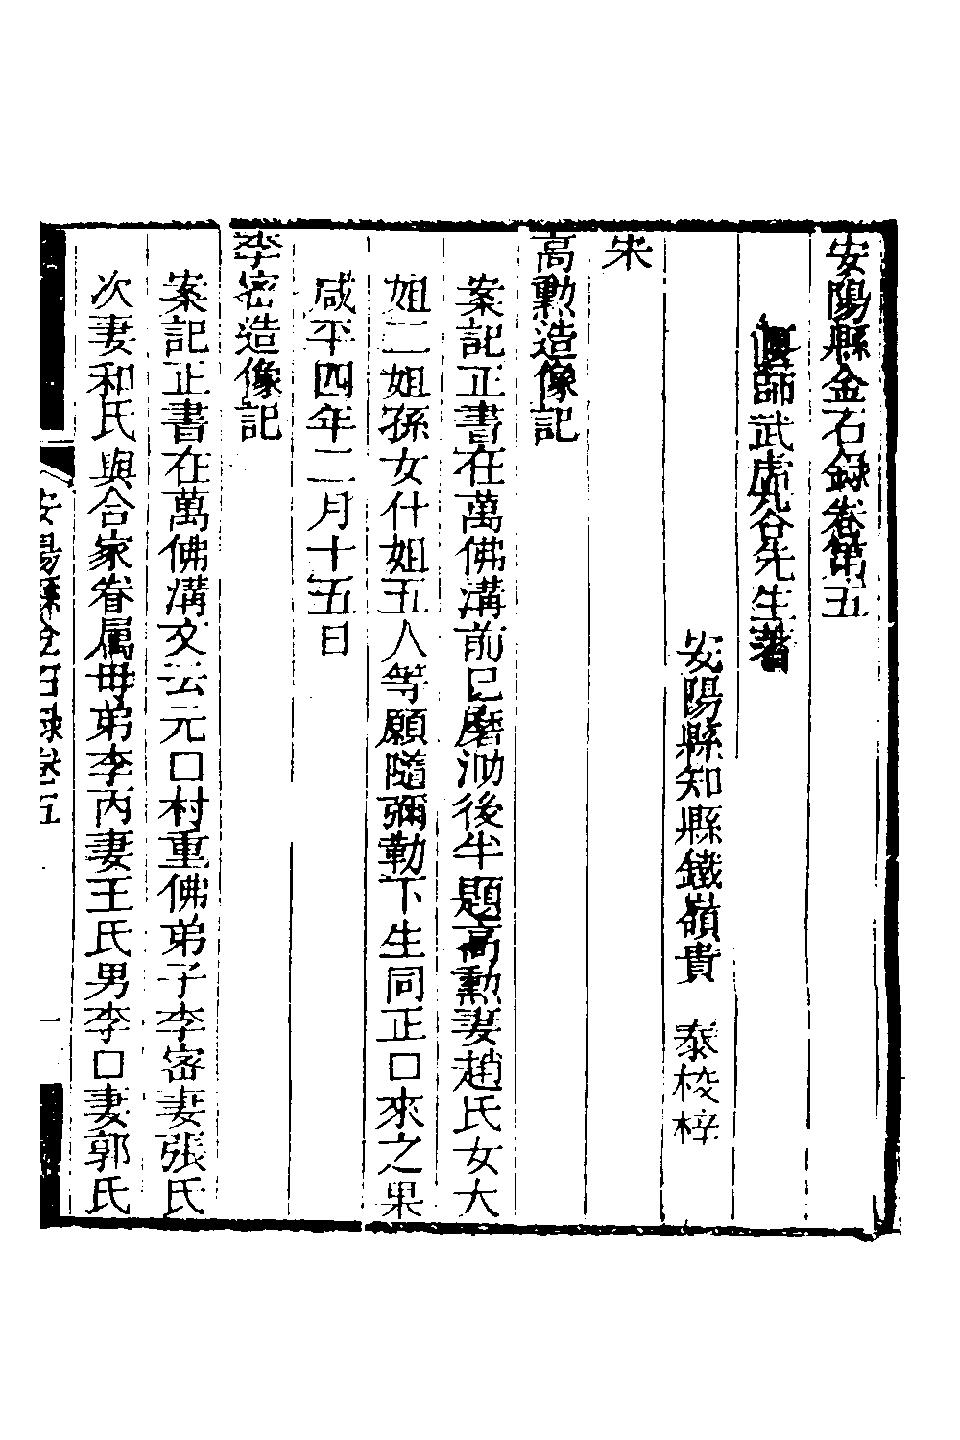 安陽縣金石錄卷第五
偃師武虛谷先生著
安陽縣知縣鐵嶺貴　泰校梓
宋
高勳造像記
案記正書在萬佛溝前已磨泐後半題高勳妻趙氏女大
姐二姐孫女什姐五八等願隨彌勒下生同正口來之果
咸平四年二月十五日
李密造像記
案記正書在萬佛溝文云元口村重佛弟子李密妻張氏
次妻和氏與合家眷属母弟李丙妻王氏男李口妻郭氏
安陽縣金石錄卷五
一